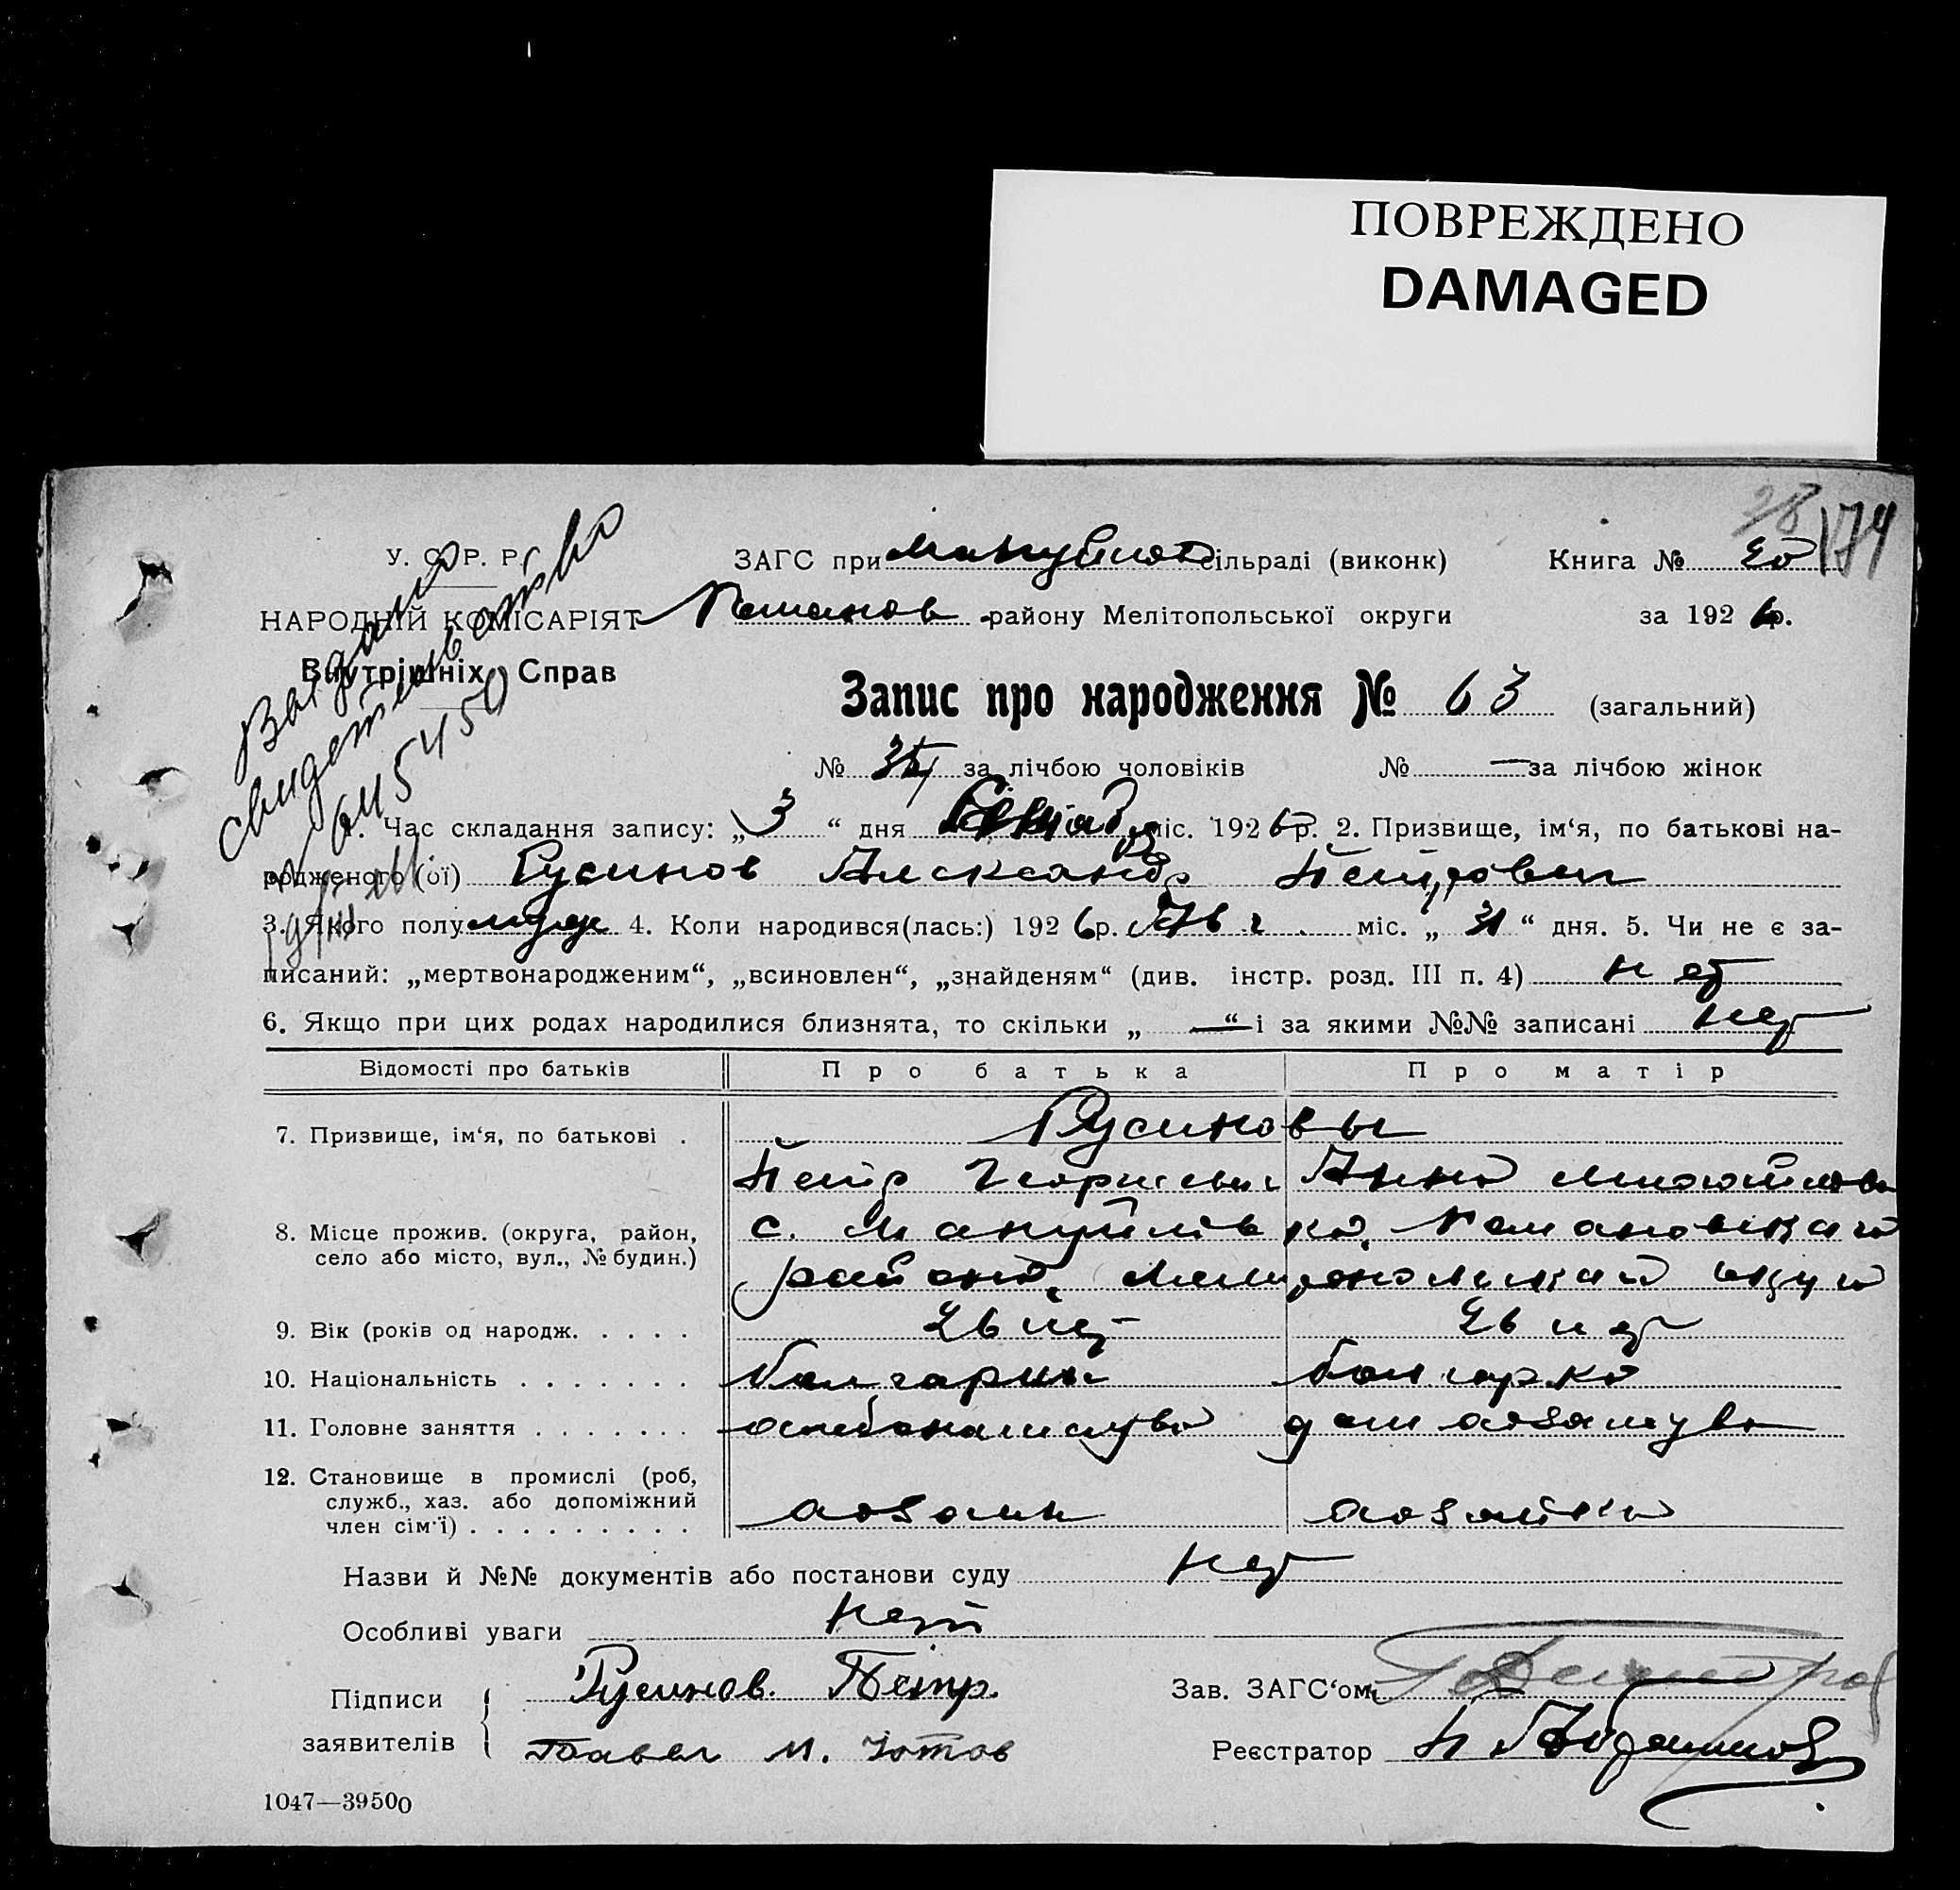 ПОВРЕЖДЕНО
DAMAGED
28 174
У. С. Р. Р. ЗАГС при сільраді (виконк) Книга №
НАРОДНІЙ КОМІСАРІЯТ району Мелітопольської округи за 1926 р.
Внутрішніх Справ
Выдано
свидетельство
Запис про народження № 63 (загальний)
№ за лічбою чоловіків № — за лічбою жінок
1. Час складання запису: „3“ дня міс. 1926 р. 2. Призвище, ім‘я, по батькові на-
родженого (ої) Русинов Александр Петрович
3. Якого полу муж 4. Коли народився(лась:) 1926 р. міс. „31“ дня. 5. Чи не є за-
писаний: „мертвонародженим“, „всиновлен“, „знайденям“ (див. інстр. розд. III п. 4) нет
6. Якщо при цих родах народилися близнята, то скільки „—“ і за якими №№ записані нет
Відомості про батьків Про батька Про матір
7. Призвище, ім‘я, по батькові . Русиновы
Петр Георгиевич Анна
8. Місце прожив. (округа, район, с. Мануйлівка,
село або місто, вул., № будин.) района,
9. Вік (років од народж. . . . . 26 лет 26 лет
10. Національність . . . . . . . болгарин болгарка
11. Головне заняття . . . . . . .
12. Становище в промислі (роб,
служб., хаз. або допоміжний
член сім‘ї) . . . . . . . . . хозяин хозяйка
Назви й №№ документів або постанови суду нет
Особливі уваги нет
Підписи Русинов Петр. Зав. ЗАГС‘ом
заявителів Павел М. Реєстратор
1047—39500